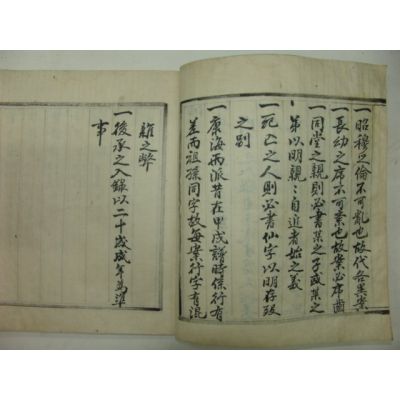 昭穆之倫不可亂也故代各異案
一長幼之序不可紊也故案必序齒
一同堂之親則必書某之子或某之
弟以明親親自近者始之義
一死亡之人則必書仙字以明存歿
之別
一康海兩派昔在甲戌譜時係行有
差而祖孫同字故每案行字有混
雜之弊
一後承之入錄以二十歲成年爲準
事